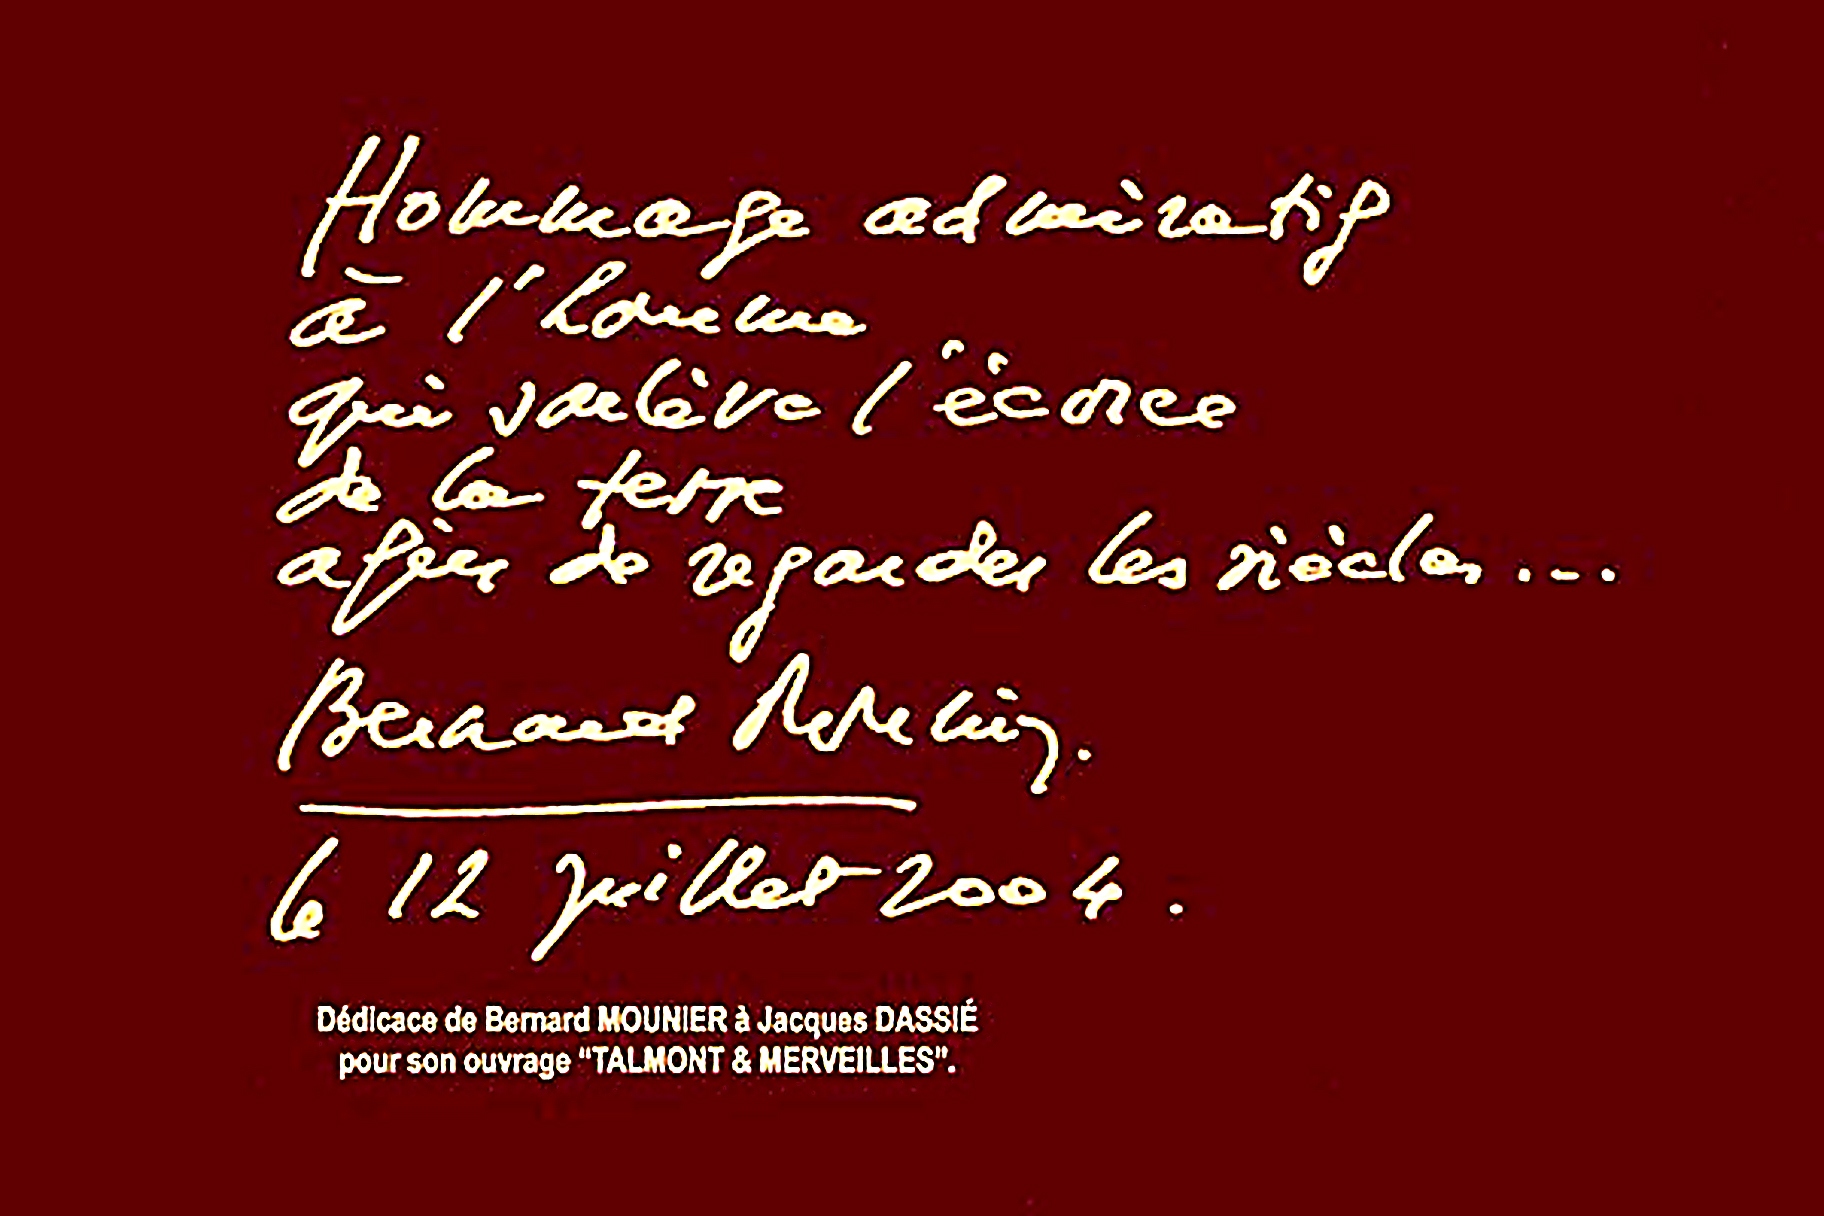 Hommage admiratif
à l'homme
qui soulève l'écorce
de la terre
afin de regarder les siècles...
Bernard Mounier.
le 12 juillet 2004.
Dédicace de Bernard MOUNIER à Jacques DASSIÉ
pour son ouvrage "TALMONT & MERVEILLES".